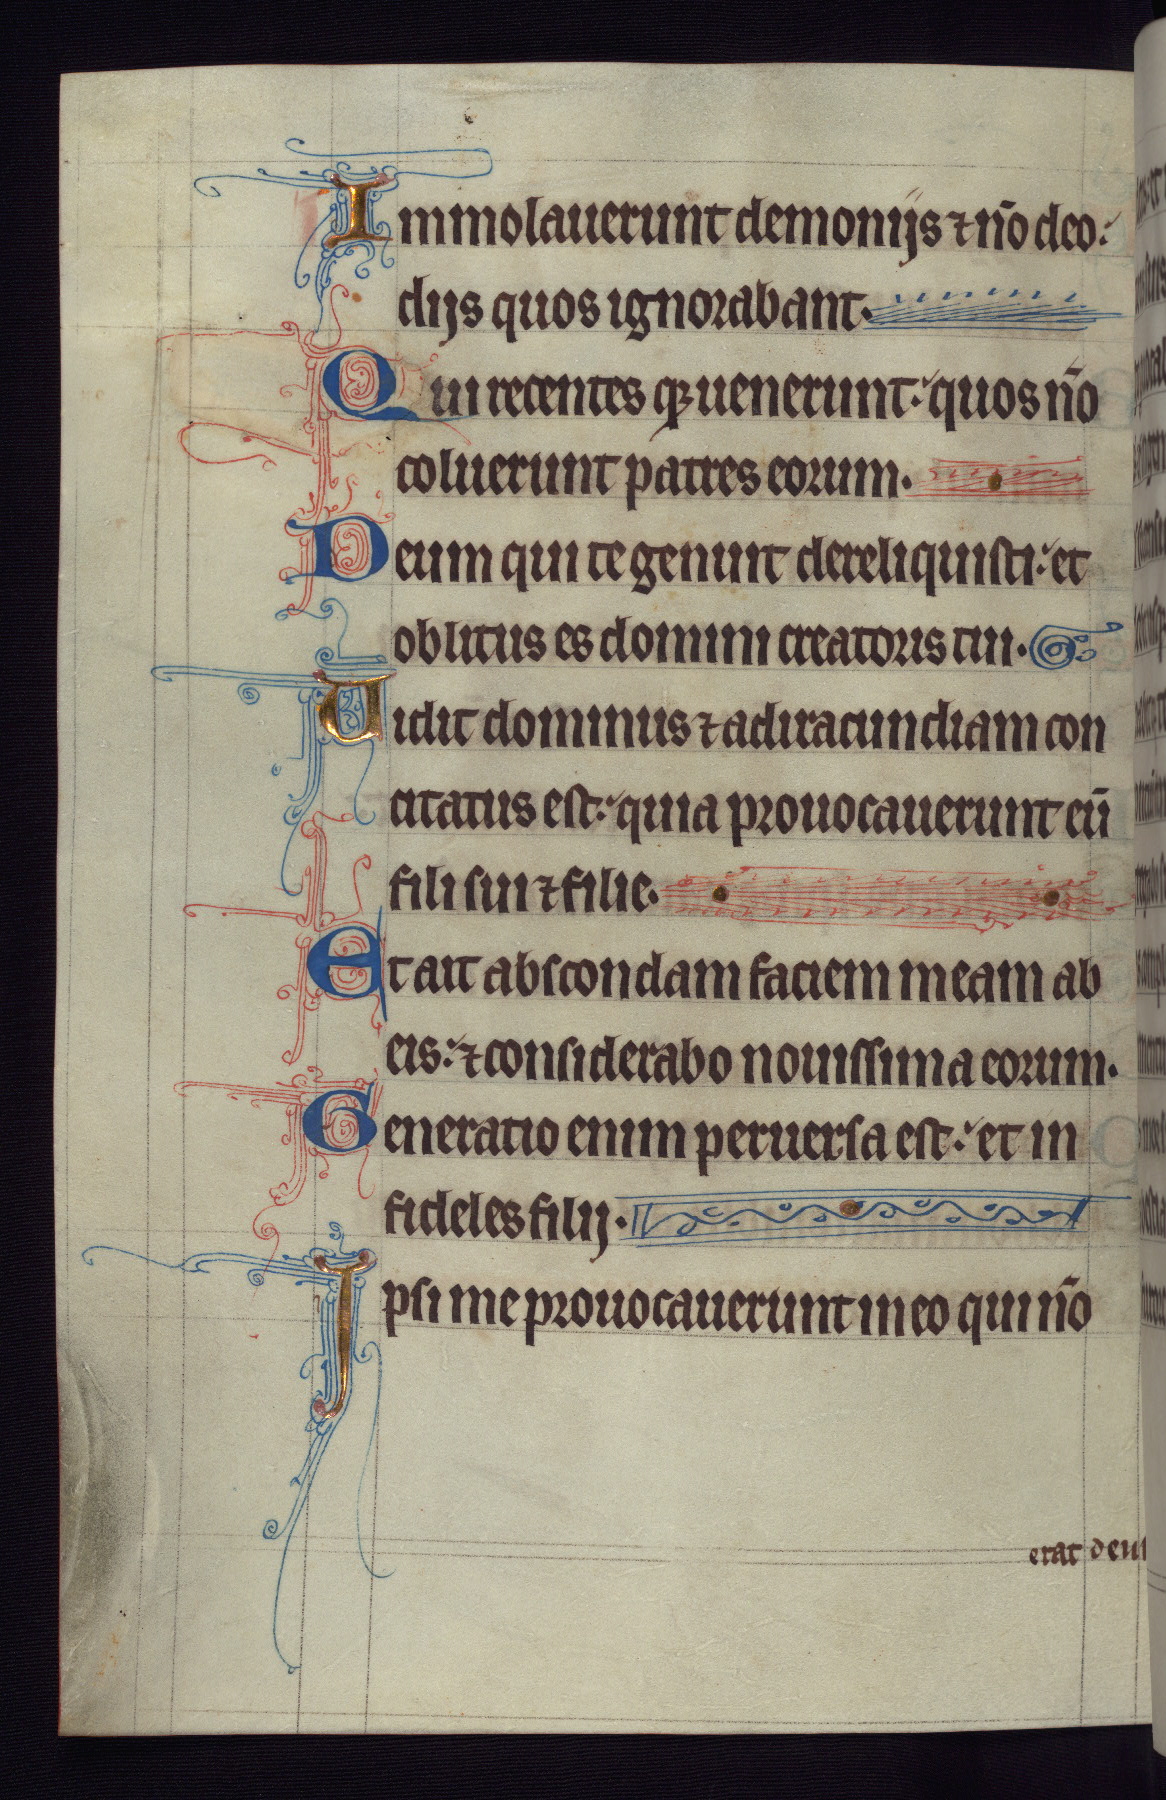 Immolauerunt demonijs ⁊ nõ deo:
dijs quos ignorabant.
Qui recentes q̢ uenerunt: quos nõ
coluerunt patres eorum.
Deum qui te genuit dereliquisti: et
oblitus es domini creatoris tui.
Uidit dominus ⁊ ad iracundiam con
citatus est: quia prouocauerunt eũ
fili sui ⁊ filie.
Et ait abscondam faciem meam ab
eis: ⁊ considerabo nouissima eorum.
Generatio enim peruersa est: et in
fideles filij.
Ipsi me prouocauerunt in eo qui nõ
erat deus